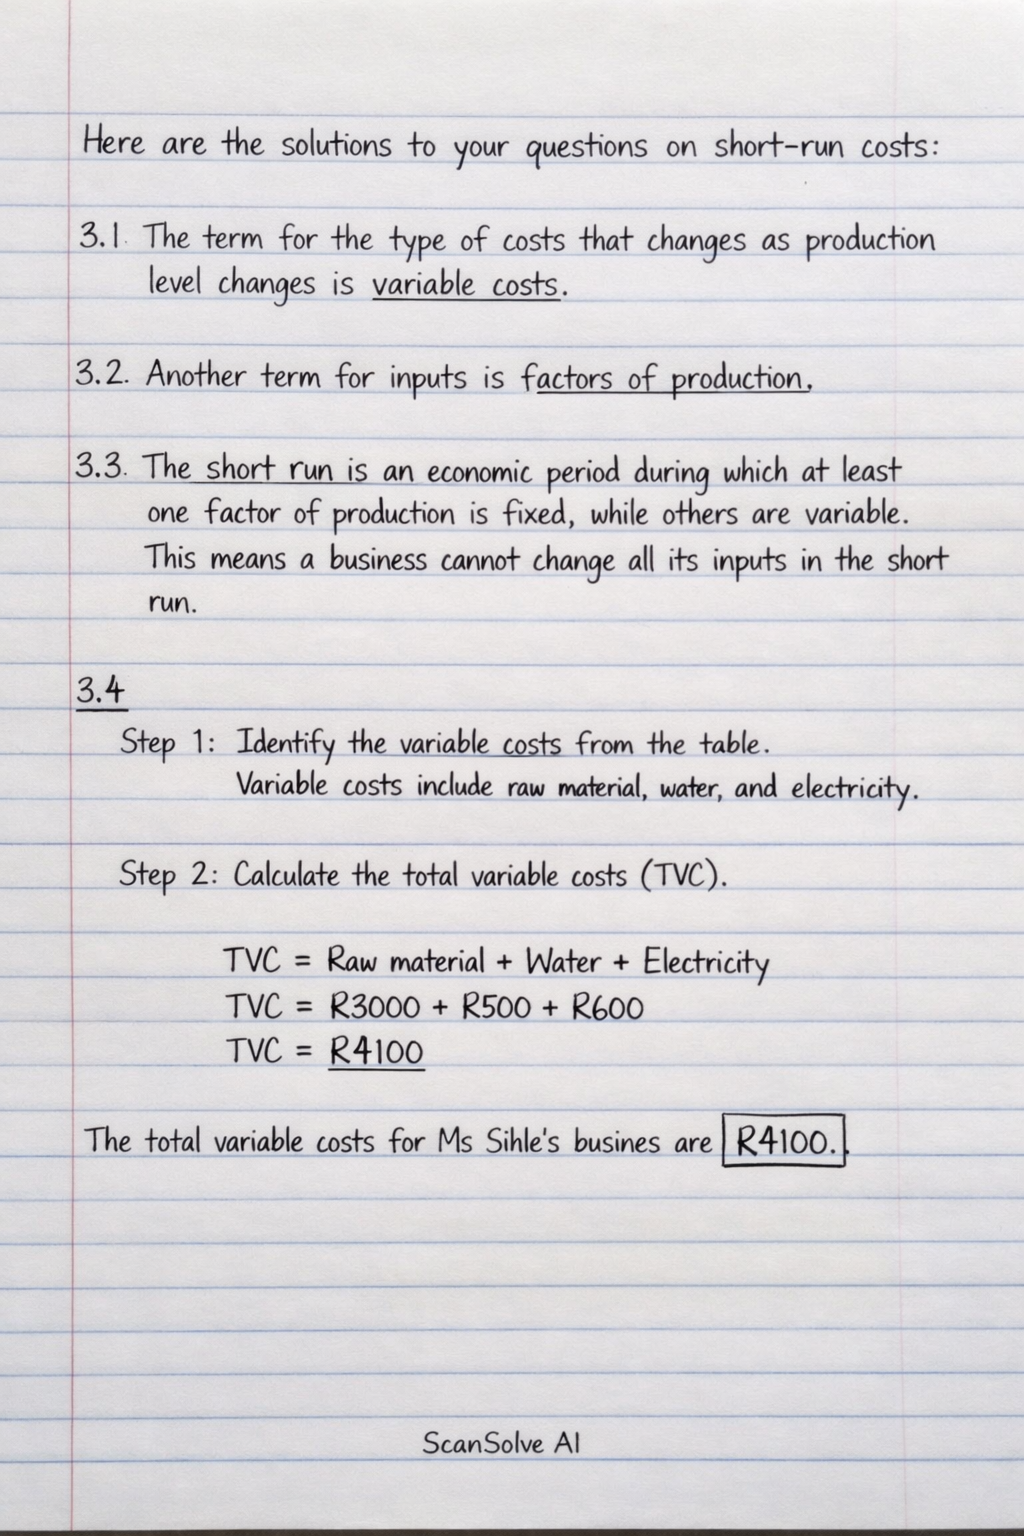 Here are the solutions to your questions on short-run costs:
3.1. The term for the type of costs that changes as production
level changes is variable costs.
3.2. Another term for inputs is factors of production.
3.3. The short run is an economic period during which at least
one factor of production is fixed, while others are variable.
This means a business cannot change all its inputs in the short
run.
3.4
Step 1: Identify the variable costs from the table.
Variable costs include raw material, water, and electricity.
Step 2: Calculate the total variable costs (TVC).
TVC = Raw material + Water + Electricity
TVC = R3000 + R500 + R600
TVC = R4100
The total variable costs for Ms Sihle's busines are R4100..
ScanSolve AI